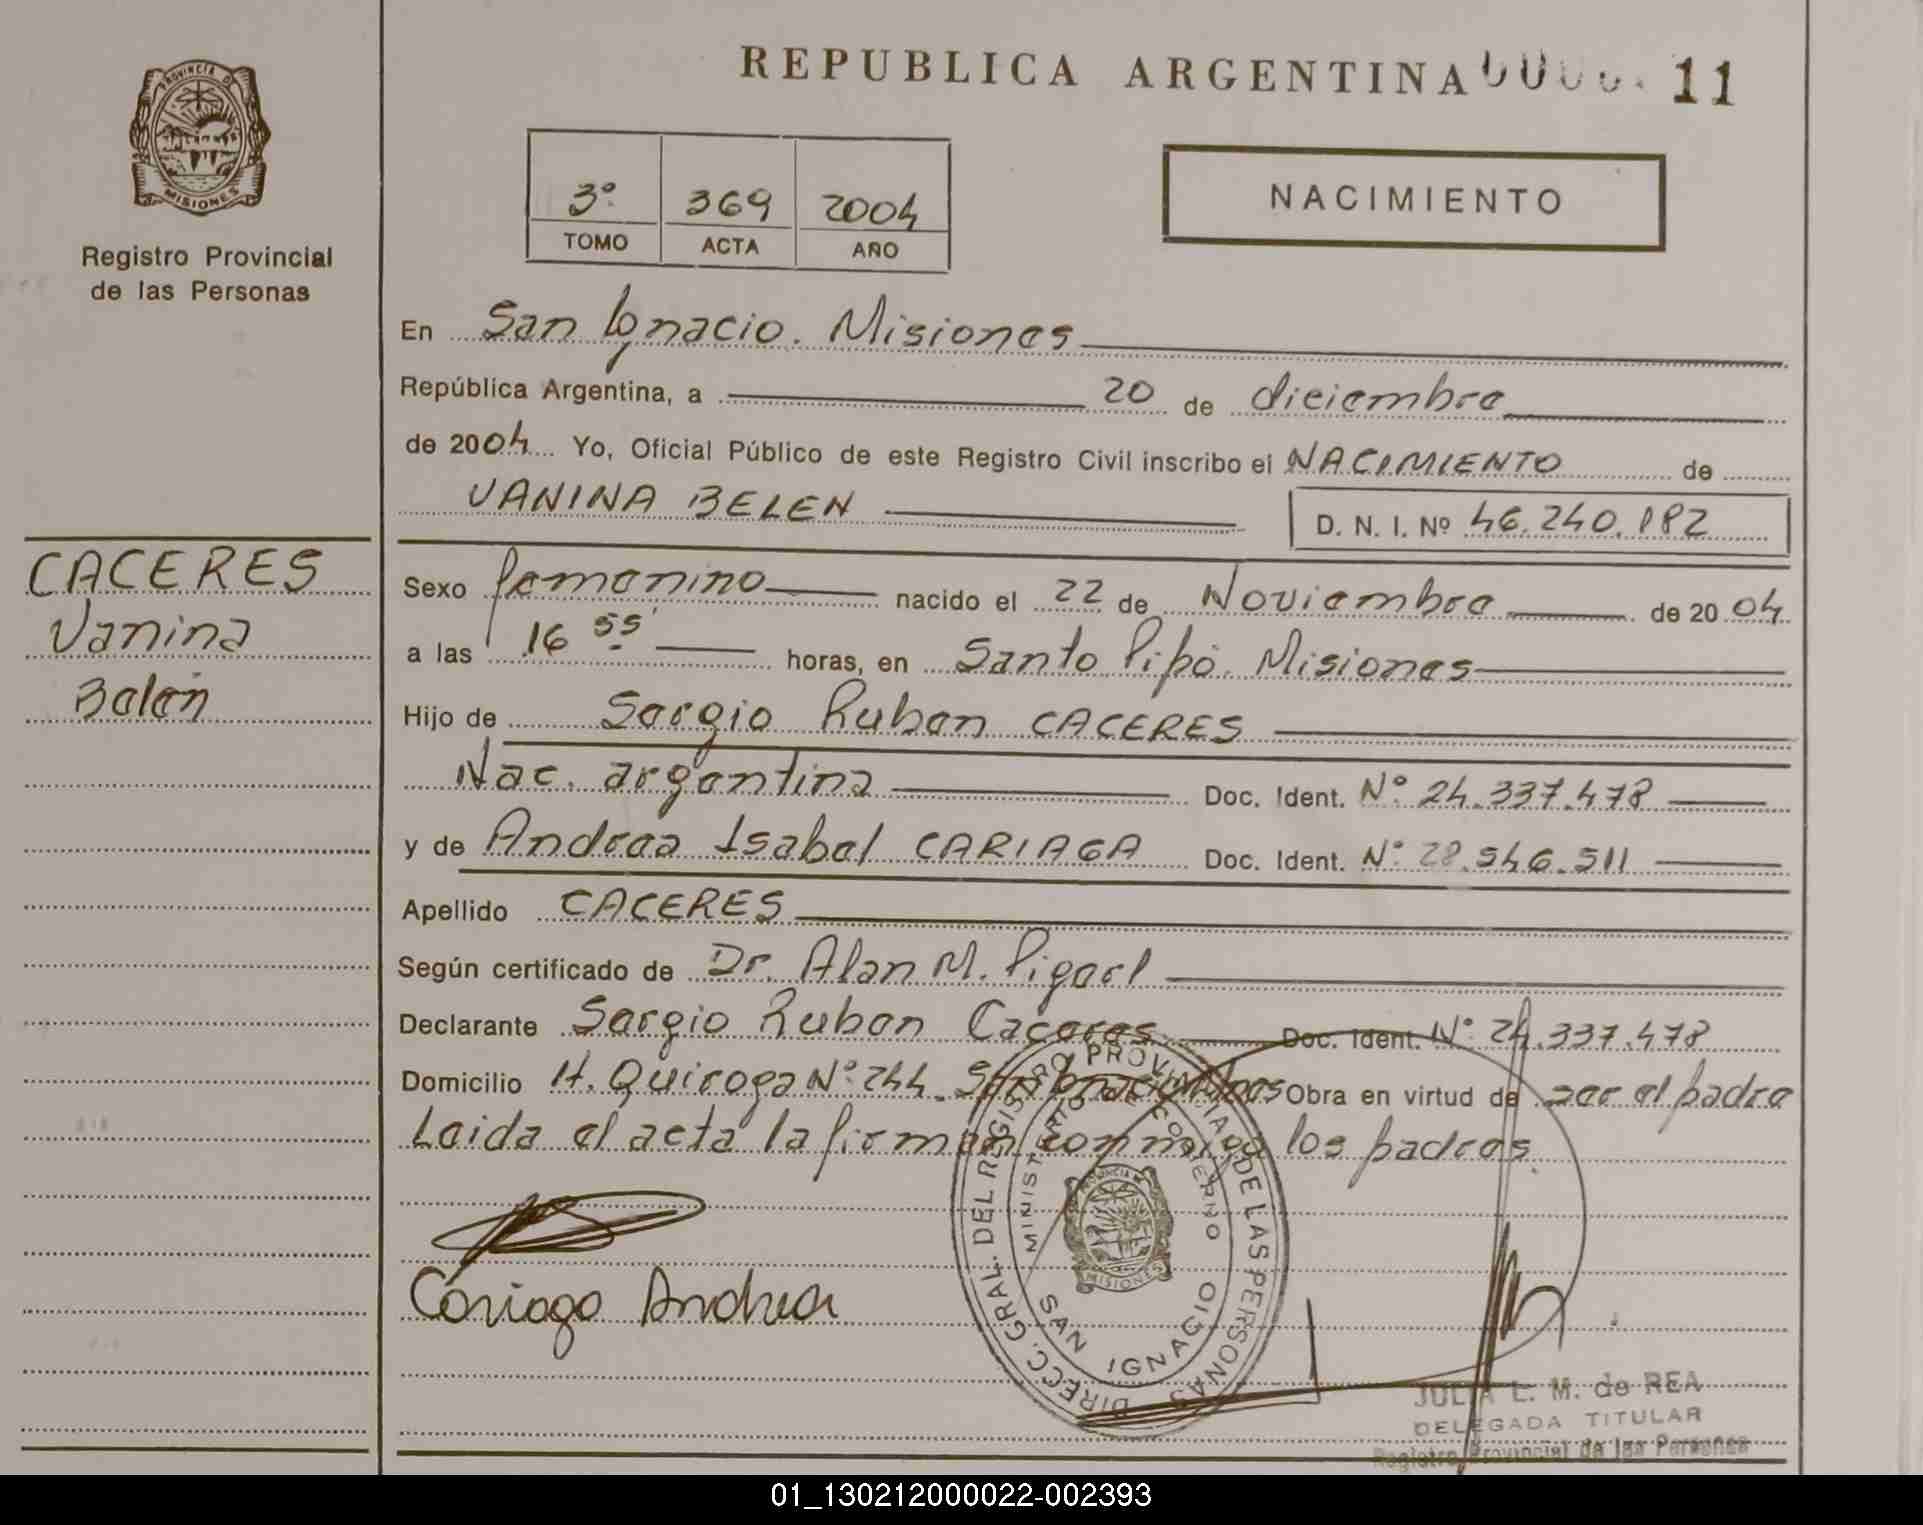 REPUBLICA ARGENTINA 11
PROVINCIA DE
MISIONES
Registro Provincial
de las Personas
3º 369 2004
TOMO ACTA AÑO
NACIMIENTO
En San Ignacio. Misiones
República Argentina, a 20 de diciembre
de 2004 Yo, Oficial Público de este Registro Civil inscribo el NACIMIENTO de
VANINA BELEN D. N. I. Nº 46.240.182
CACERES
Vanina
Belen
Sexo femenino nacido el 22 de Noviembre de 2004
a las 16 55' horas, en Santo Pipó. Misiones
Hijo de Sergio Ruben CACERES
Nac. argentina Doc. Ident. Nº 24.337.478
y de Andrea Isabel CARIAGA Doc. Ident. Nº 28.546.511
Apellido CACERES
Según certificado de Dr. Alan M.
Declarante Sergio Ruben Caceres Doc. Ident. Nº 24.337.478
Domicilio H. Quiroga Nº 244. San Ignacio Mnes Obra en virtud de ser el padre
Leida el acta la firman conmigo los padres.
DIRECC. GRAL. DEL REGISTRO PROVINCIAL DE LAS PERSONAS
MINISTERIO DE GOBIERNO
PROVINCIA DE
MISIONES
SAN IGNACIO
Cariaga Andrea
JULIA L. M. de REA
DELEGADA TITULAR
Registro Provincial de las Personas
01_130212000022-002393